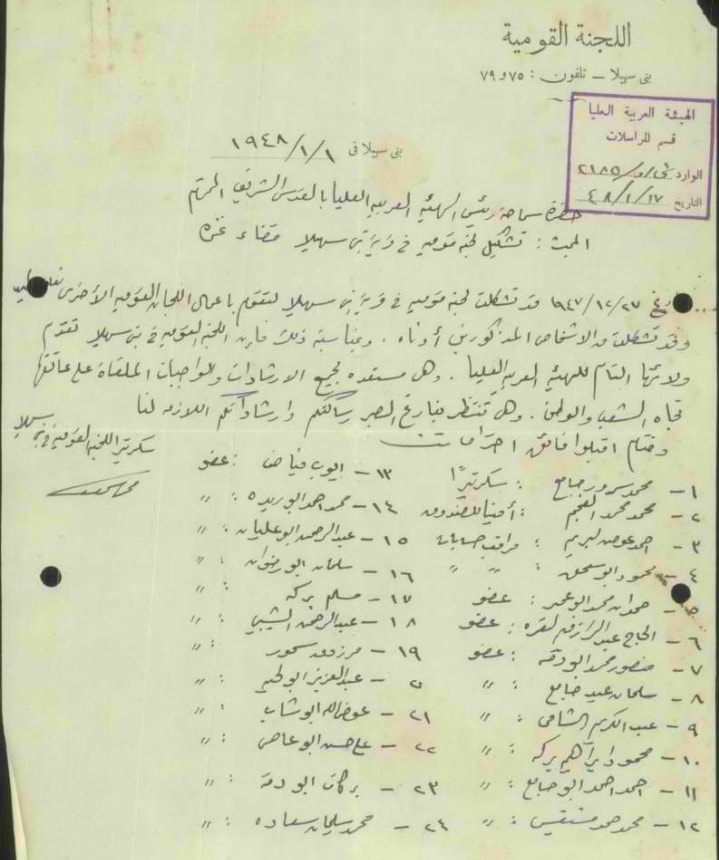 اللجنة القومية
بنى سهيلا – تلفون : ٧٥ و ٧٩
الهيئة العربية العليا
قسم المراسلات
الوارد ٢١٨٥
التاريخ ٤٨/١/١٧
بنى سهيلا فى ١٩٤٨/١/١
حضرة سماحة رئيس الهيئة العربية العليا بالقدس الشريف المحترم
المبحث : تشكيل لجنة قومية في قرية بني سهيلا قضاء غزة
١٩٤٧/١٢/٢٧ قد تشكلت لجنة قومية في قرية بني سهيلا لتقوم باعمال اللجان القومية الأخرى
وقد تشكلت من الاشخاص المذكورين أدناه . وبمناسبة ذلك فإن اللجنة القومية في بني سهيلا تقدم
ولائها التام للهيئة العربية العليا . وهي مستعدة لجميع الارشادات والواجبات الملقاة على عاتقها
تجاه الشعب والوطن . وهي تنتظر بفارغ الصبر رسالتكم وارشاداتكم اللازمة لنا
وختاما اقبلوا فائق احترامات
سكرتير اللجنة القومية في بني سهيلا
١ – محمد سرور جامع : سكرتيرًا
٢ – محمد محمد العجم : أمينا للصندوق
٣ – احمد عوض بريم : مراقب حسابات
٤ – محمود ابو سحق : " "
حمدان محمد ابو عمر : عضو
٦ – الحاج عبد الرازق لقره : عضو
٧ – منصور محمد ابو دقه : عضو
٨ – سلمان عيد جامع : "
٩ – عبد الكريم الشامى : "
١٠ – محمود ابراهيم بركه : "
١١ – احمد احمد ابو جامع : "
١٢ – محمد حمد : "
١٣ – ايوب فياض : عضو
١٤ – محمد احمد ابو ريده : "
١٥ – عبد الرحمن ابو عليان : "
١٦ – سلمان ابو رضوان : "
١٧ – مسلم بركه "
١٨ – عبد الرحمن "
١٩ – مرزوق سمور "
عبد العزيز ابو "
٢١ – عوض الله ابو شاب "
٢٢ – علي حسن ابو عاصي : "
٢٣ – بركات ابو دقة : "
٢٤ – محمد سليمان سعاده : "